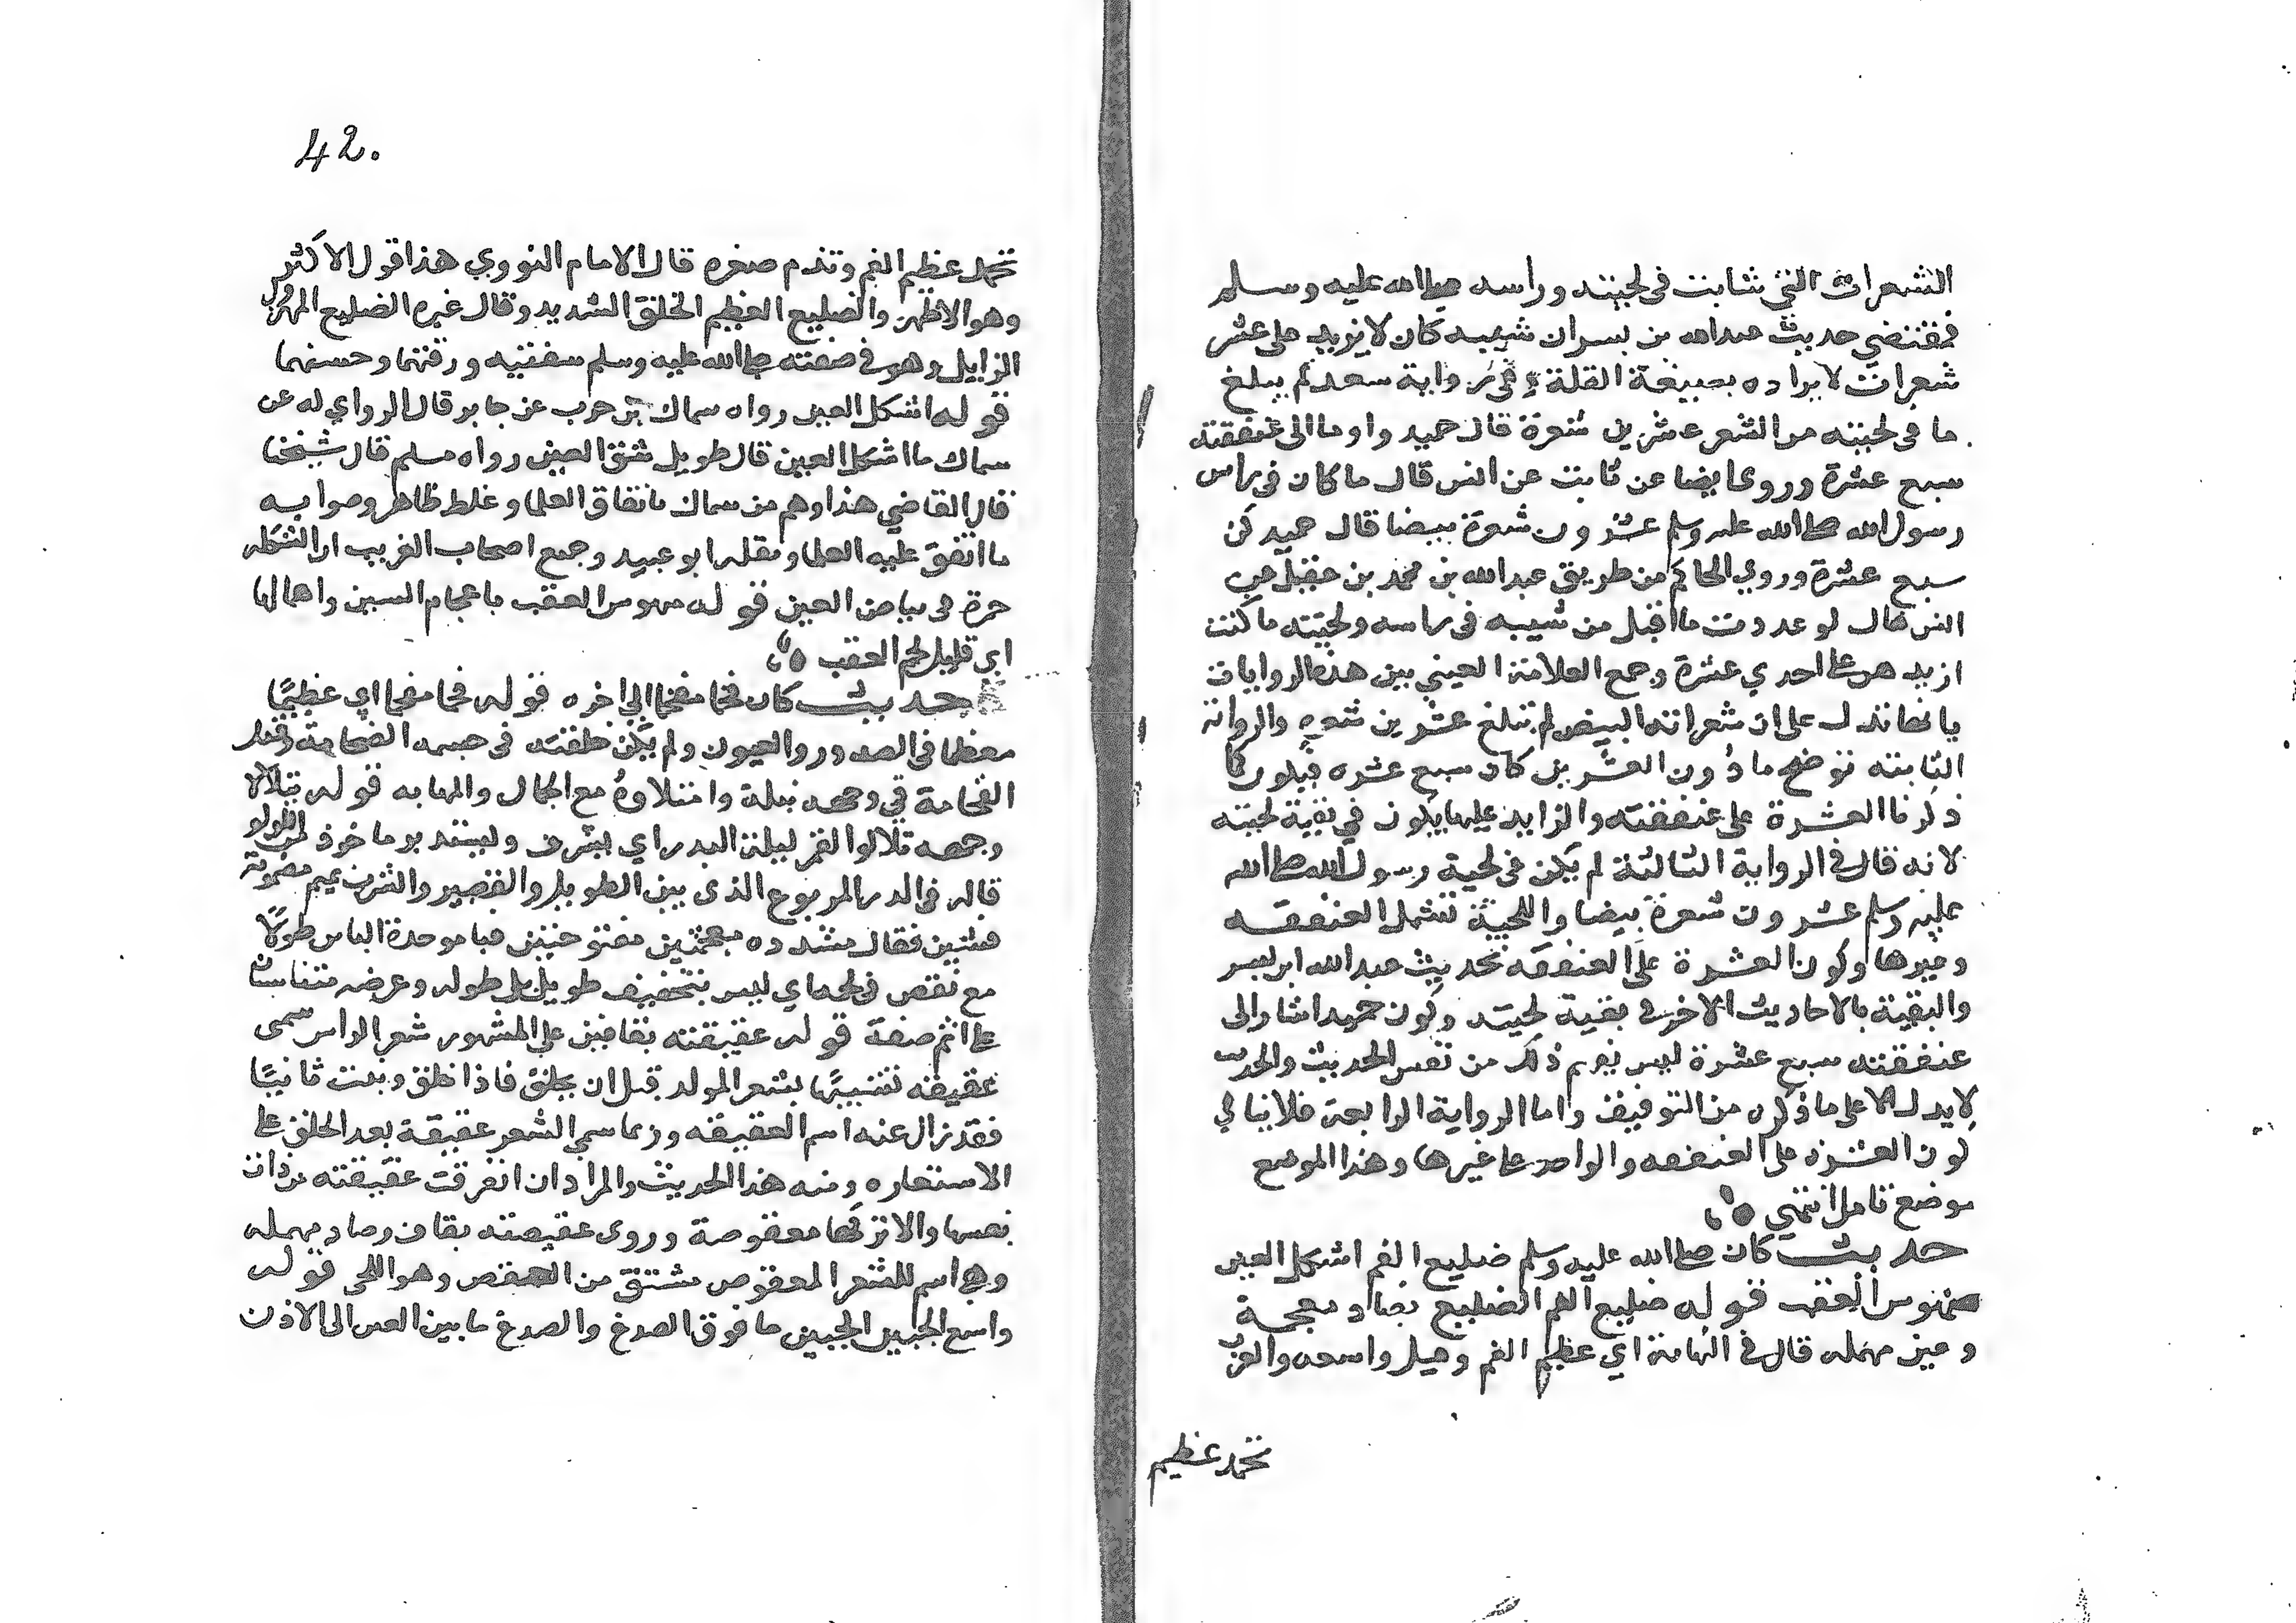 الشعرات التي شابت في لحيته وراسه صلى الله عليه وسلم
فمقتضى حديث عبدالله بن بسر ان شيبه كان لا يزيد على عشر
شعرات لايراده بصيغة القلة وفي رواية سعد لم يبلغ
ما في لحيته من الشعر عشرين شعرة قال حميد واوما الى عنفقته
سبع عشرة وروى ايضا عن ثابت عن انس قال ما كان في راس
رسول الله صلى الله عليه وسلم عشرون شعرة بيضا قال حميد كن
سبع عشرة وروي الحاكم من طريق عبدالله بن محمد بن عقيل عن
انس قال لو عددت ما اقبل من شيبه في راسه ولحيته ما كنت
ازيدهن على احدي عشرة وجمع العلامة العيني بين هذه الروايات
بانها تدل على ان شعراته البيض لم تبلغ عشرين شعره والرواية
الثابتة توضح ما دون العشرين كان سبع عشره فيكون كما
ذكرنا العشرة على عنفقته والزايد عليها يكون في بقية لحيته
لانه قال في الرواية الثالثة لم يكن في لحية رسول الله صلى الله
عليه وسلم عشرون شعرة بيضا واللحية تشمل العنفقه
وغيرها وكون العشرة على العنفقه بحديث عبدالله ابن بسر
والبقية بالاحاديث الاخر في بقية لحيته وكون حميد اشار الى
عنفقته سبع عشرة ليس يفهم ذلك من نفس الحديث والحديث
لا يدل الا على ما ذكره من التوفيق واما الرواية الرابعة فلا ينافي
كون العشره على العنفقه والواحد على غيرها وهذا الموضع
موضع تامل انتهي
حديث كان صلى الله عليه وسلم ضليع الفم اشكل العين
منهوس العقب قوله ضليع الفم الضليع بضاد معجمة
وعين مهمله قال في النهاية اي عظيم الفم وقيل واسعه والعرب
تحمد عظيم
42.
تحمد عظيم الفم وتذم صغره قال الامام النووي هذا قول الاكثر
وهو الاظهر والضليع العظيم الخلق الشديد وقال غيره الضليع المهزول
الزايل وهو في صفته صلى الله عليه وسلم سفتيه ورقتهما وحسنهما
قوله اشكل العين رواه سماك بن حرب عن جابر قال الراوي له عن
سماك ما اشكل العين قال طويل شق العين رواه مسلم قال شيخنا
قال القاضي هذا وهم من سماك باتفاق العلما وغلط ظاهر وصوابه
ما اتفق عليه العلما ونقله ابو عبيد وجمع اصحاب الغريب ان الشكله
حمرة في بياض العين قوله منهوس العقب باعجام السين واهمالها
اي قليل لحم العقب
حديث كان فخما مفخما الي اخره قوله فخما مفخما اي عظيمًا
معظما في الصدور والعيون ولم يكن خلقته في جسمه الضخامة وقيل
الفخامة في وجهه نبله وامتلاوه مع الجمال والمهابه قوله يتلالا
وجهه تلالوا القمر ليلة البدر اي يشرف ويستدير ماخوذ من اللولو
قاله في الدر المربوع الذي بين الطويل والقصير والشرب بميم مضمومة
فشين فقال مشدده معجمتين مفتوحتين فبا موحدة الباس طولًا
مع نقص في لحمه اي ليس بنحيف طويل بل طوله وعرضه متناسبان
على اتم صفة قوله عقيقته بقافين على المشهور شعر الراس سمى
عقيقه تشبيهًا بشعر المولد قبل ان يحلق فاذا حلق ونبت ثانيًا
فقد زال عنه اسم العقيقه وربما سمي الشعر عقيقة بعد الحلق على
الاستعاره ومنه هذا الحديث والمراد ان انفرقت عقيقته من ذات
نفسها والا تركها معقوصة وروى عقيصته بقاف وصاد مهمله
وهي اسم للشعر المعقوص مشتق من العقص وهو اللى قوله
واسع الجبين الجبين ما فوق الصدغ والصدغ ما بين العين الى الاذن